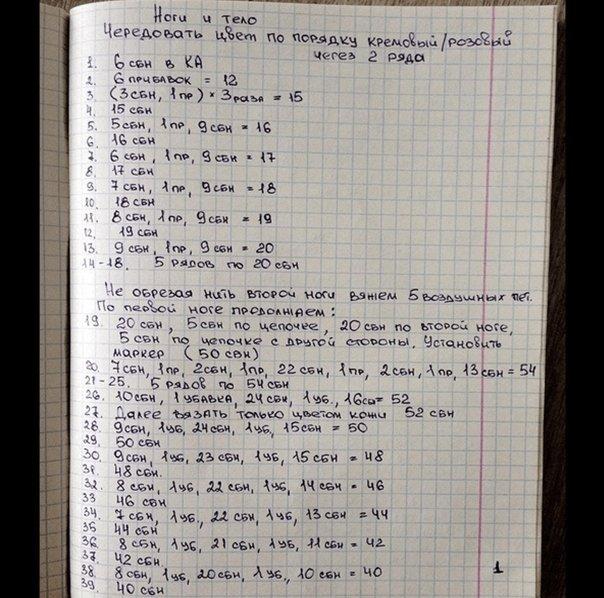 Ноги и тело
Чередовать цвет по порядку кремовый/розовый
через 2 ряда
1. 6 сбн в КА
2. 6 прибавок = 12
3 (3сбн, 1пр) * 3раза = 15
4. 15 сбн
5. 5сбн, 1пр, 9сбн = 16
6. 16 сбн
7. 6 сбн, 1пр, 9сбн = 17
8. 17 сбн
9. 7сбн, 1пр, 9сбн = 18
10. 18 сбн
11. 8 сбн, 1пр, 9сбн = 19
12. 19 сбн
13. 9сбн, 1пр, 9сбн = 20
14-18. 5 рядов по 20 сбн
Не обрезая нить второй ноги вяжем 5 воздушных пет.
По первой ноге продолжаем:
19. 20 сбн, 5сбн по цепочке, 20 сбн по второй ноге,
5 сбн по цепочке с другой стороны. Установить
маркер (50 сбн)
20. 7сбн, 1пр, 2сбн, 1пр, 22 сбн, 1пр, 2 сбн, 1пр, 13 сбн = 54
21-25. 5 рядов по 54 сбн
26. 10сбн, 1 убавка, 24 сбн, 1 уб., 16сбн = 52
27. Далее вязать только цветом кожи 52 сбн
28. 9сбн, 1уб, 24сбн, 1уб, 15сбн = 50
29. 50 сбн
30. 9сбн, 1уб, 23 сбн, 1уб, 15 сбн = 48
31. 48 сбн.
32. 8 сбн, 1уб, 22 сбн, 1уб, 14 сбн = 46
33 46 сбн
34. 7 сбн, 1уб, 22 сбн, 1уб, 13 сбн = 44
35 44 сбн
36 8 сбн, 1уб, 21 сбн, 1уб, 11 сбн = 42
37. 42 сбн
38. 8сбн, 1уб, 20сбн, 1уб., 10 сбн = 40
39. 40 сбн
1